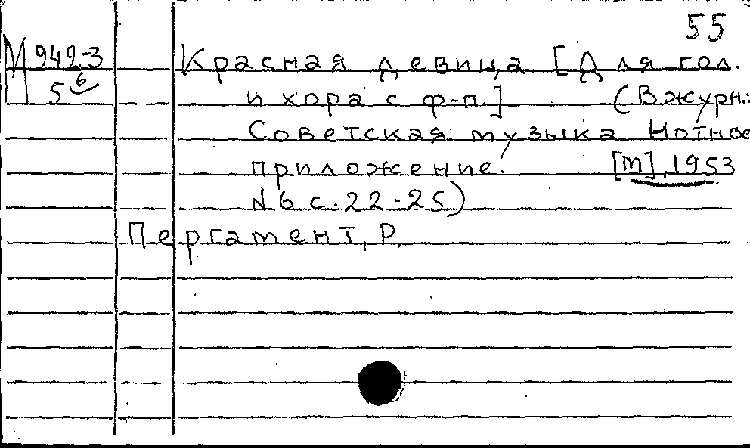 55
М 942-3 Красная девица [Для гол.
5 6 и хора с ф-п.] (В журн.:
Советская музыка Нотное
приложение. [М], 1953
N 6 с. 22-25)
Пергамент, Р.